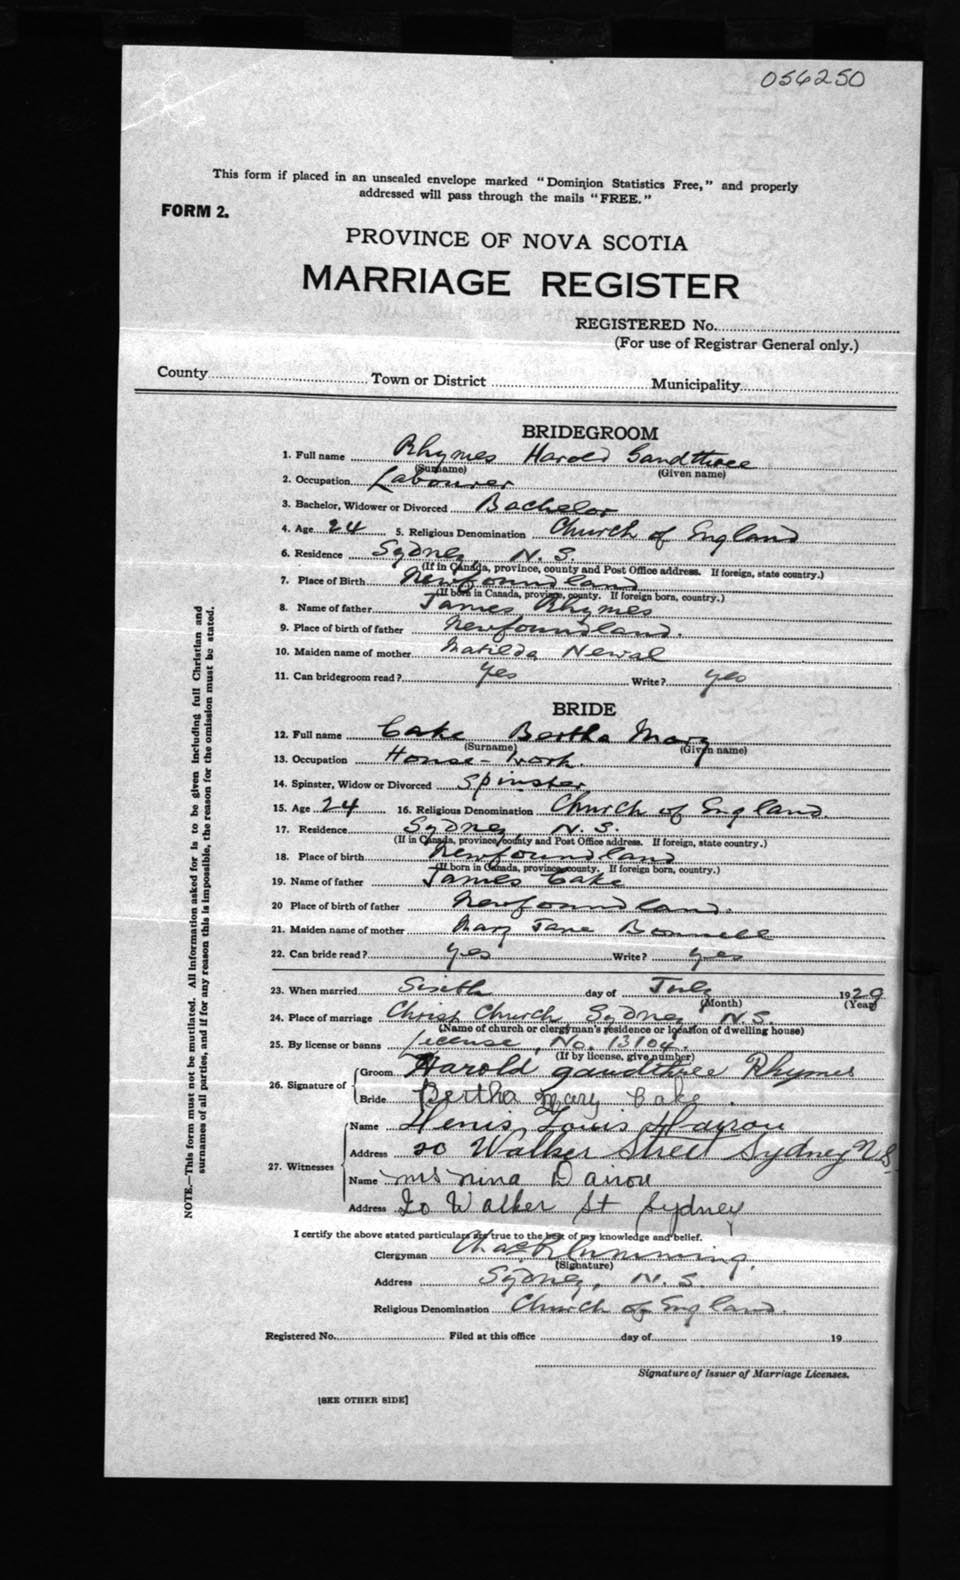 056250
This form if placed in an unsealed envelope marked "Dominion Statistics Free," and properly
addressed will pass through the mails "FREE."
FORM 2.
PROVINCE OF NOVA SCOTIA
MARRIAGE REGISTER
REGISTERED No.
(For use of Registrar General only.)
County Town or District Municipality
BRIDEGROOM
1. Full name Rhymes Harold Gandthree
(Surname) (Given name)
2. Occupation Labourer
3. Bachelor, Widower or Divorced Bachelor
4. Age 24 5. Religious Denomination Church of England
6. Residence Sydney N. S.
(If in Canada, province, county and Post Office address. If foreign, state country.)
7. Place of Birth Newfoundland
(If born in Canada, province, county. If foreign born, country.)
8. Name of father James Rhymes
9. Place of birth of father Newfoundland.
10. Maiden name of mother Matilda Newal
11. Can bridegroom read? Yes Write? yes
BRIDE
12. Full name Cake Bertha Mary
(Surname) (Given name)
13. Occupation House-work.
14. Spinster, Widow or Divorced Spinster
15. Age 24 16. Religious Denomination Church of England.
17. Residence Sydney, N. S.
(If in Canada, province, county and Post Office address. If foreign, state country.)
18. Place of birth Newfoundland
(If born in Canada, province, county. If foreign born, country.)
19. Name of father James Cake
20 Place of birth of father Newfoundland.
21. Maiden name of mother Mary Jane
22. Can bride read? yes Write? yes
23. When married Sixth day of July 1929
(Month) (Year)
24. Place of marriage Christ Church Sydney N.S.
(Name of church or clergyman's residence or location of dwelling house)
25. By license or banns License, No. 13104.
(If by license, give number)
26. Signature of
Groom Harold gaudthree Rhymes
Bride Bertha Mary Cake.
27. Witnesses
Name Louis
Address 20 Walker Street Sydney N S
Name mrs nina Dairou
Address 20 Walker St Sydney
I certify the above stated particulars are true to the best of my knowledge and belief.
Clergyman Chas R Cumming.
(Signature)
Address Sydney, N. S.
Religious Denomination Church of England.
Registered No. Filed at this office day of 19
Signature of Issuer of Marriage Licenses.
[SEE OTHER SIDE]
NOTE.—This form must not be mutilated. All information asked for is to be given including full Christian and
surnames of all parties, and if for any reason this is impossible, the reason for the omission must be stated.